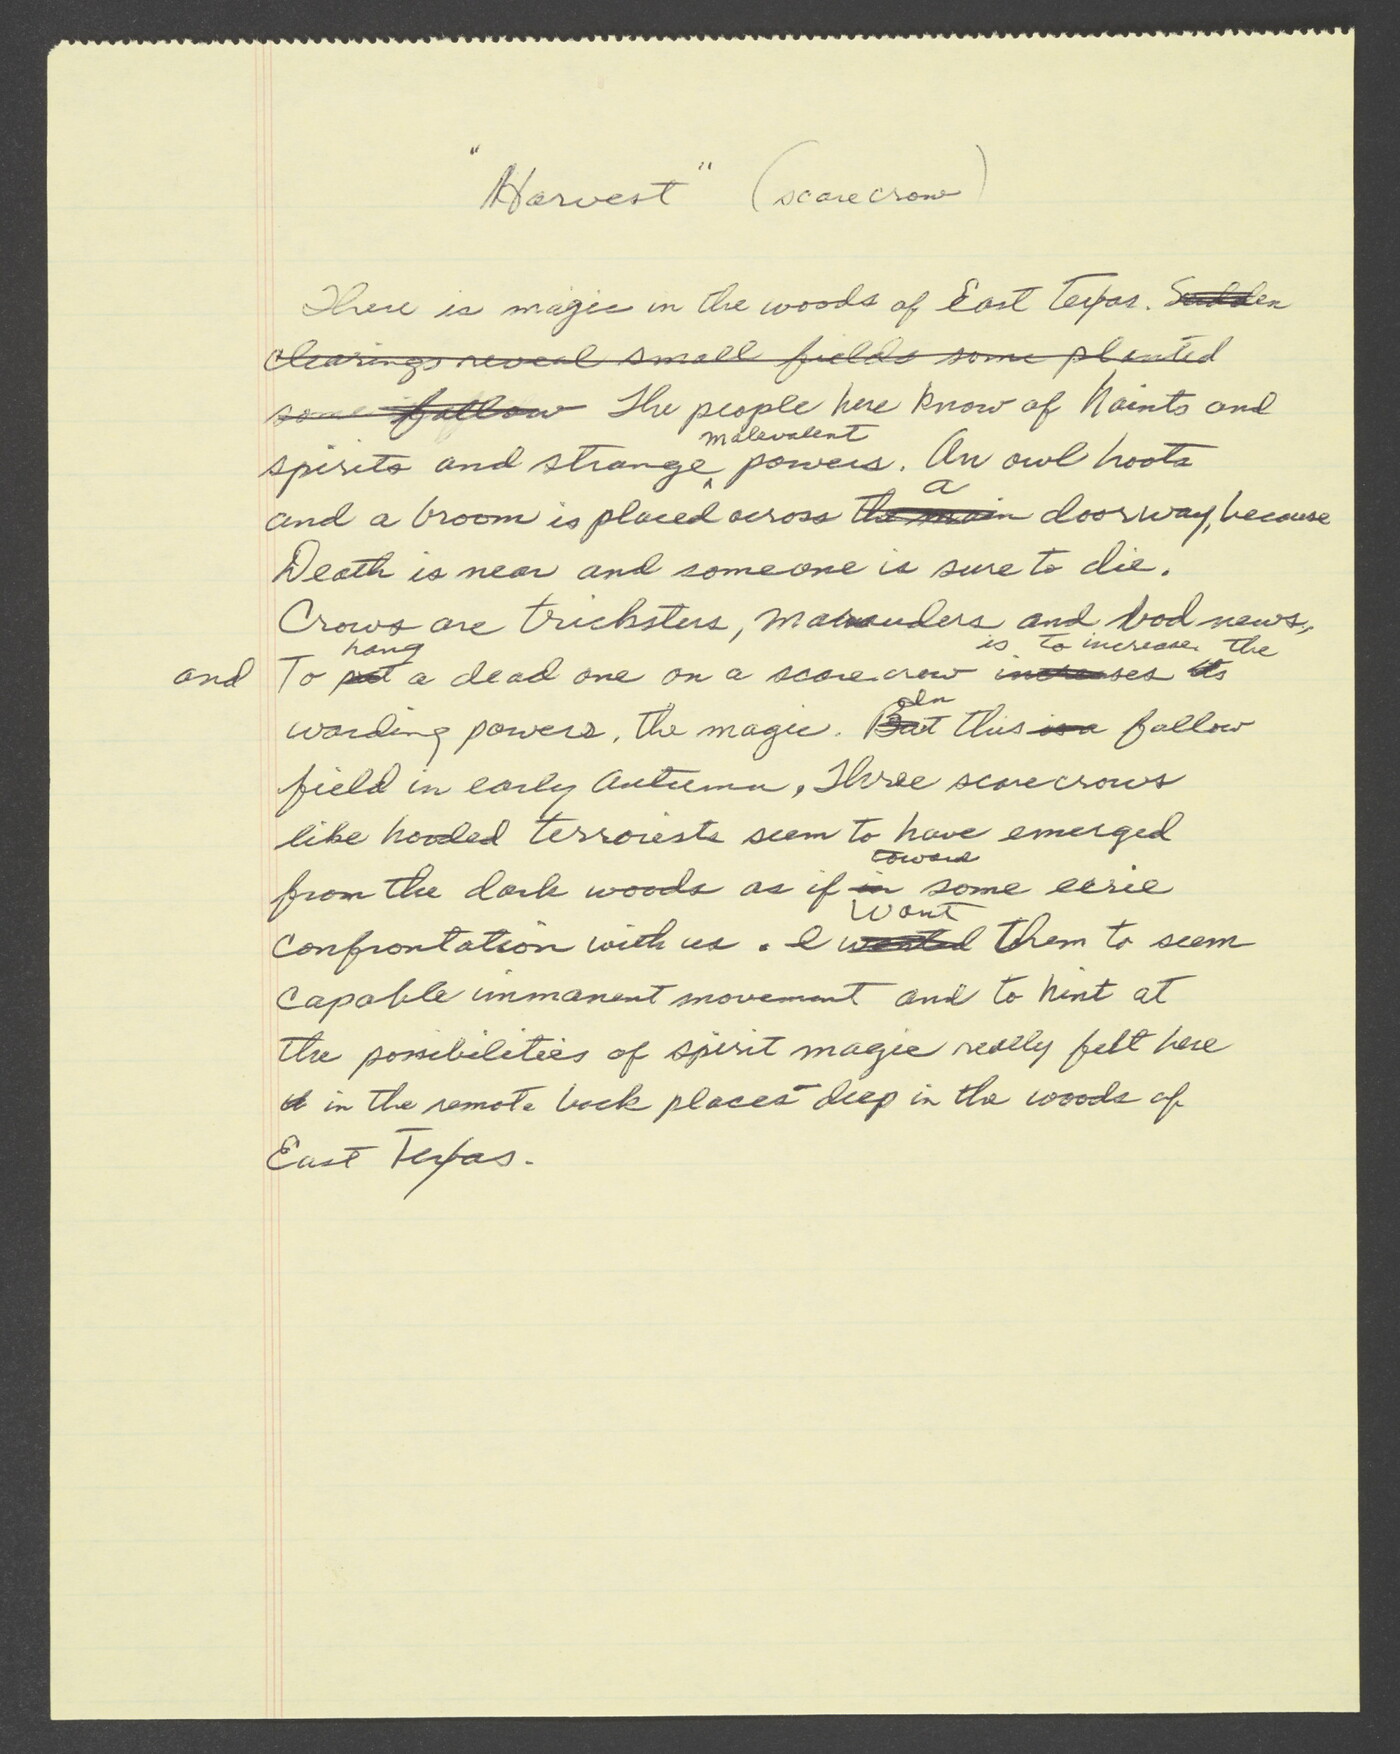 "Harvest" (scarecrow)
There is magic in the woods of East Texas. Sudden
clearings reveal small fields some planted
some fallow The people here know of Haints and
malevalent
spirits and strange powers. An owl hoots
a
and a broom is placed across the main doorway, because
Death is near and someone is sure to die.
Crows are tricksters, marauders and bad news,
hang is to increase the
and To put a dead one on a scarecrow increases its
warding powers, the magic. But this is a fallow
field in early Autumn. Three scarecrows
like hooded terrorists seem to have emerged
toward
from the dark woods as if in some eerie
Want
confrontation with us. I wanted them to seem
capable immanent movement and to hint at
the possibilities of spirit magic really felt here
in the remote back places deep in the woods of
East Texas.